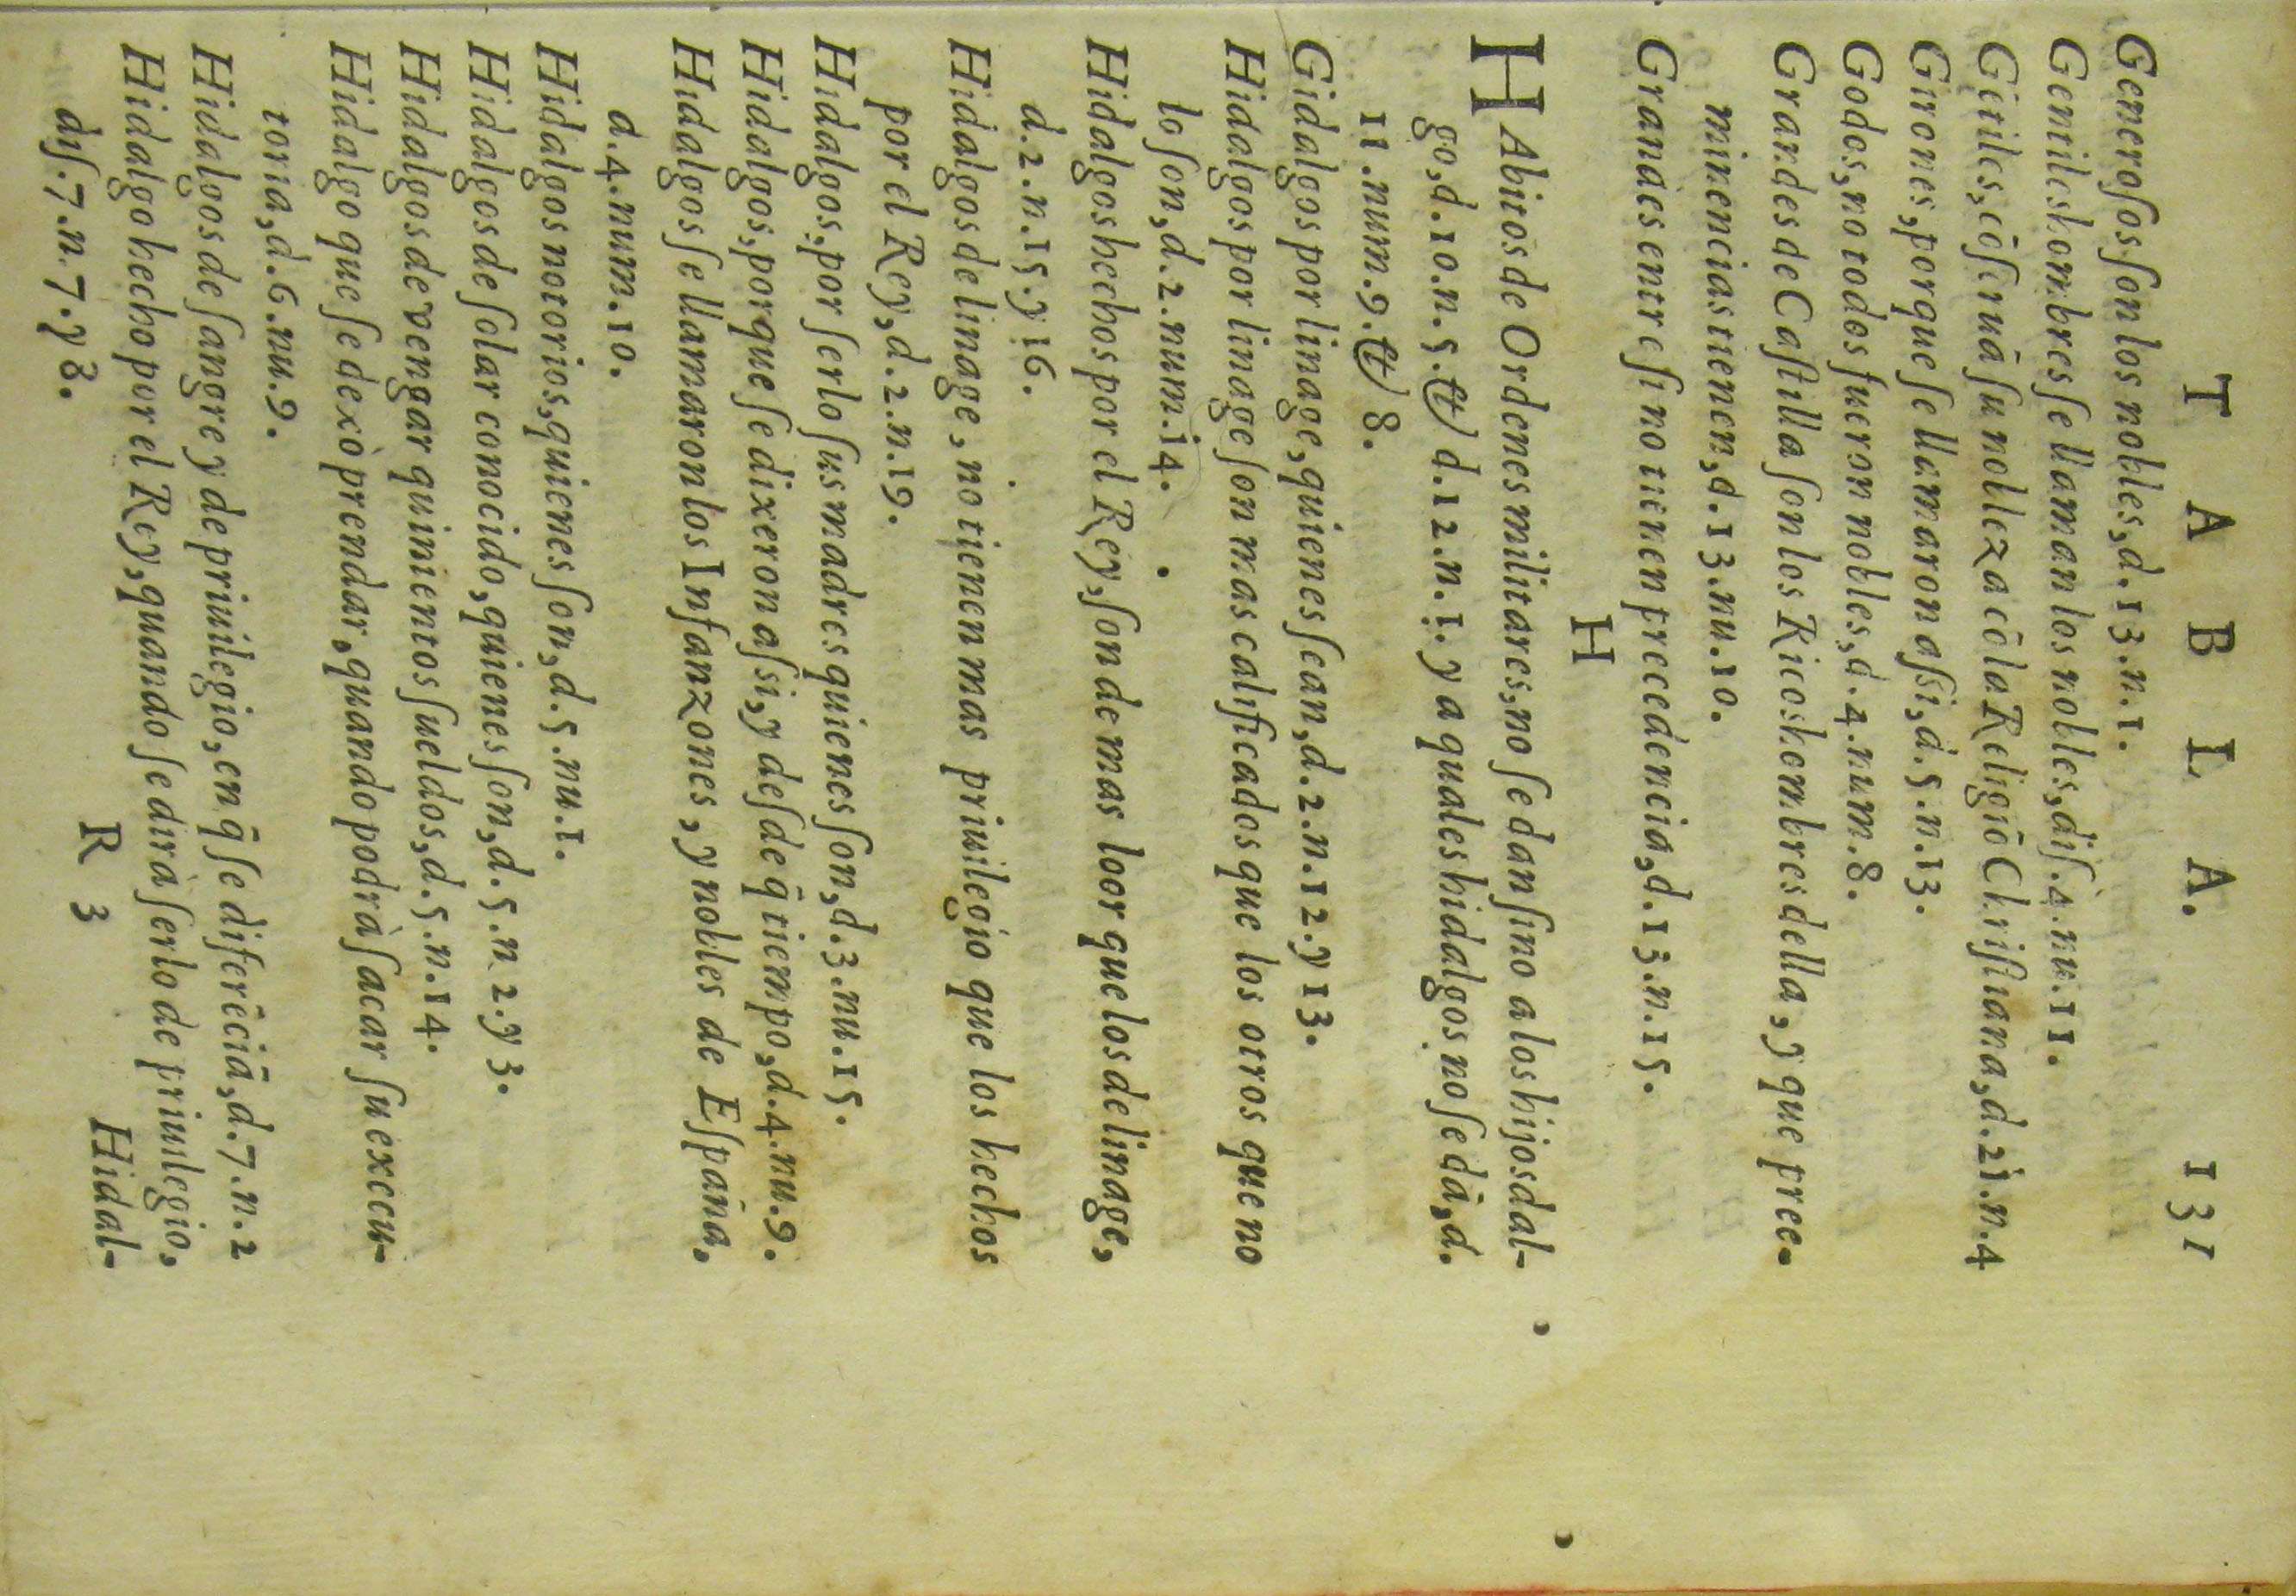 T A B L A. 131
Generoſos ſon los nobles, d. 13. n. 1.
Gentileshombres ſe llaman los nobles, diſ. 4. nu. 11.
Gẽtiles, cõſeruã ſu nobleza cõ la Religiõ Chriſtiana, d. 21. n. 4
Girones, porque ſe llamaron aſsi, d. 5. n. 13.
Godos, no todos fueron nobles, d. 4. num. 8.
Grandes de Caſtilla ſon los Ricoshombres della, y que pree-
minencias tienen, d. 13. nu. 10.
Grandes entre ſi no tienen precedencia, d. 13. n. 15.
H
HAbitos de Ordenes militares, no ſe dan ſino a los hijosdal-
go, d. 10. n. 5. & d. 12. n. 1. y a quales hidalgos no ſe dã, d.
11. num. 9. & 8.
Gidalgos por linage, quienes ſean, d. 2. n. 12. y 13.
Hidalgos por linage ſon mas calificados que los otros que no
lo ſon, d. 2. num. 14.
Hidalgos hechos por el Rey, ſon de mas loor que los de linage,
d. 2. n. 15. y 16.
Hidalgos de linage, no tienen mas priuilegio que los hechos
por el Rey, d. 2. n. 19.
Hidalgos, por ſerlo ſus madres quienes ſon, d. 3. nu. 15.
Hidalgos, porque ſe dixeron aſsi, y deſde q̃ tiempo, d. 4. nu. 9.
Hidalgos ſe llamaron los Infanzones, y nobles de Eſpaña,
d. 4. num. 10.
Hidalgos notorios, quienes ſon, d. 5. nu. 1.
Hidalgos de ſolar conocido, quienes ſon, d. 5. n 2. y 3.
Hidalgos de vengar quinientos ſueldos, d. 5. n. 14.
Hidalgo que ſe dexò prendar, quando podrà ſacar ſu execu-
toria, d. 6. nu. 9.
Hidalgos de ſangre y de priuilegio, en q̃ ſe diferẽciã, d. 7. n. 2
Hidalgo hecho por el Rey, quando ſe dirà ſerlo de priuilegio,
diſ. 7. n. 7. y 8.
R 3 Hidal-